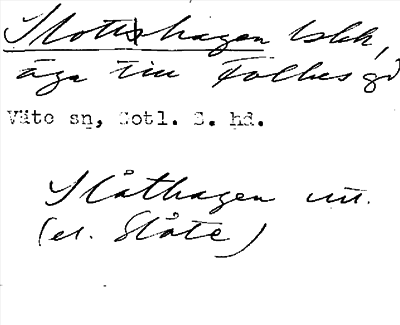 Slottshagen bsk,
äga till Folkes gd
Väte sn, Gotl. S. hd.
Slåthagen utt.
(el. Slåte)